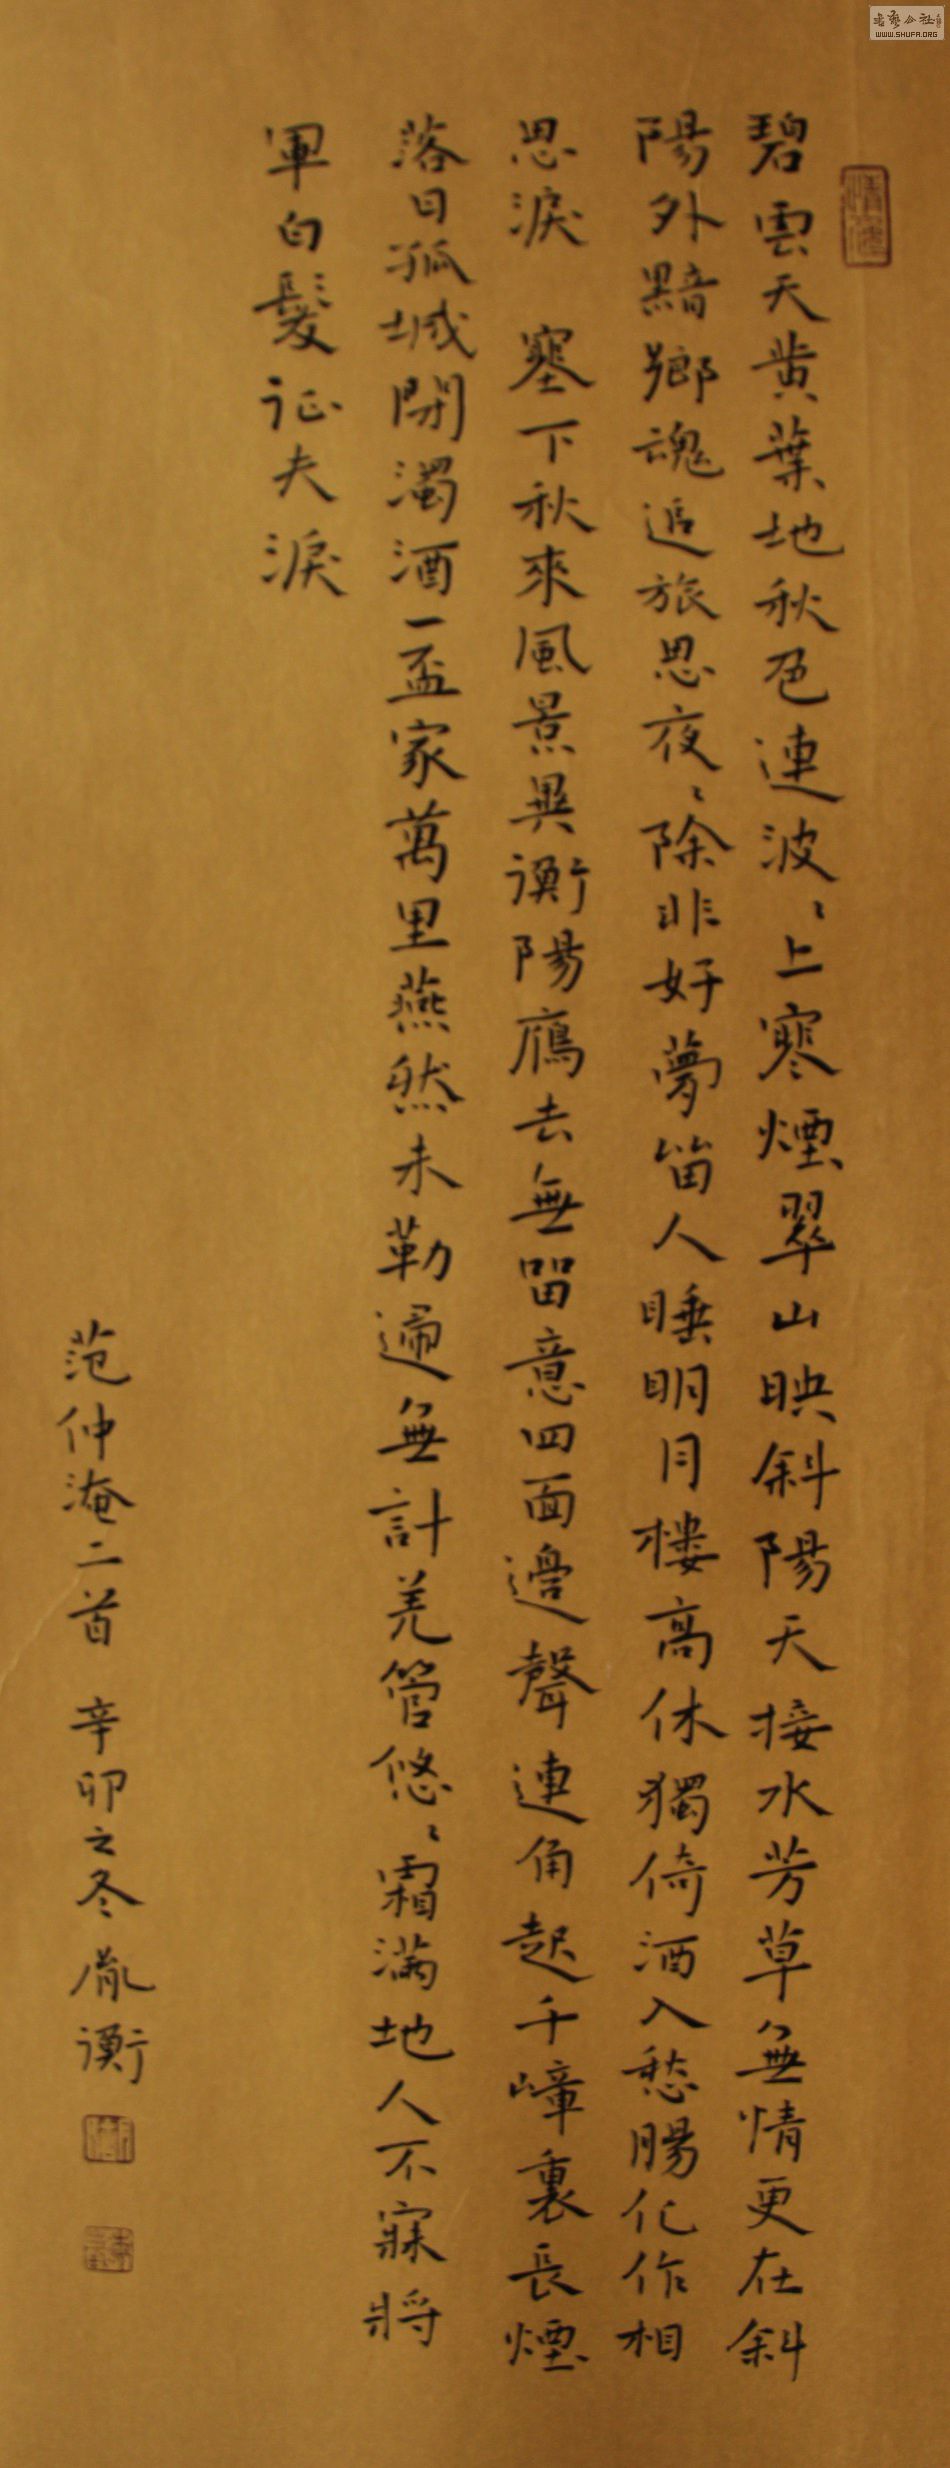 碧雲天黄葉地秋色連波〻上寒煙翠山映斜陽天接水芳草無情更在斜
陽外黯鄉魂追旅思夜〻除非好夢笛人睡明月樓高休獨倚酒入愁腸化作相
思淚 塞下秋來風景異衡陽鴈去無留意四面邊聲連角起千嶂裏長煙
落日孤城閉濁酒一盃家萬里燕然未勒歸無計羌管悠〻霜滿地人不寐將
軍白髮征夫淚
范仲淹二首 辛卯之冬 胤衡
WWW.SHUFA.ORG